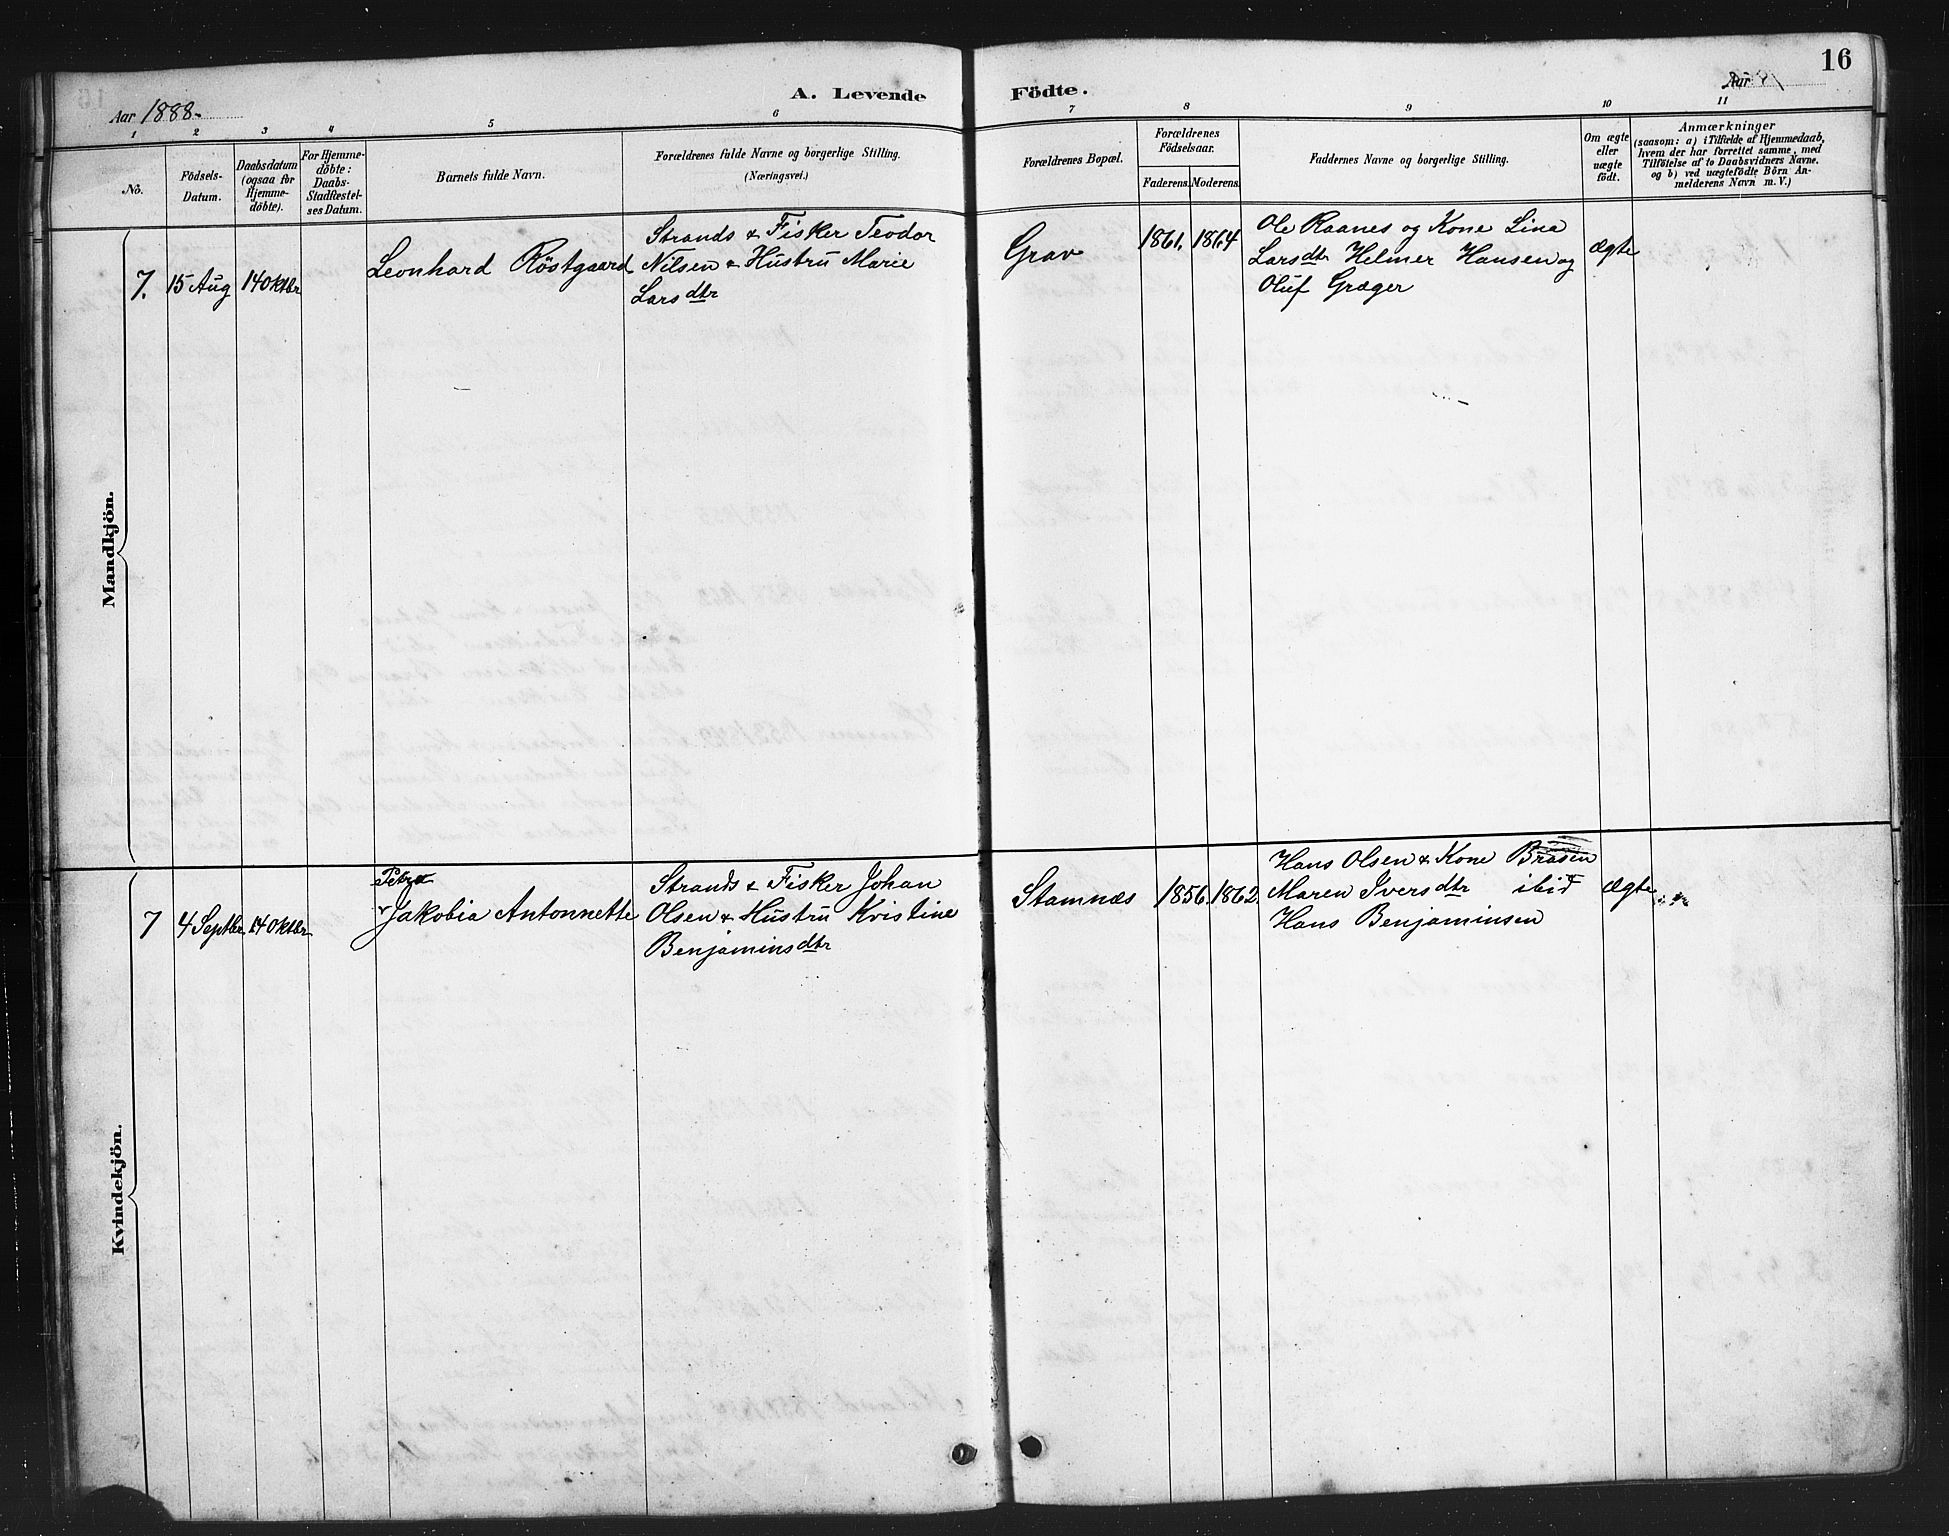 16
Aar 1888.
A. Levende Födte.
Aar
1 2 3 4 5 6 7 8 9 10 11
No.
Födsels-
Datum.
Daabsdatum
(ogsaa for
Hjemme-
döbte).
For Hjemme-
döbte:
Daabs-
Stadfæstel-
ses Datum.
Barnets fulde Navn.
Forældrenes fulde Navne og borgerlige Stilling.
(Næringsvei.)
Forældrenes Bopæl.
Forældrenes
Födselsaar.
Faderens. Moderens.
Faddernes Navne og borgerlige Stilling.
Om ægte
eller
uægte
födt.
Anmærkninger
(saasom: a) i Tilfælde af Hjemmedaab,
hvem der har forrettet samme, med
Tilföielse af to Daabsvidners Navne.
og b) ved uægtefödte Börn An-
melderens Navn m. V.)
Mandkjön.
7.
15 Aug
14 Oktbr
Leonhard Röstgaard
Strands & Fisker Teodor
Nilsen & Hustru Marie
Larsdtr
Grav
1861.
1864
Ole Raanes og Kone Lina
Larsdtr Helmer Hansen og
Oluf Græger
Ægte
Kvindekjön.
7
4 Septbr.
14 Oktbr
Petra
Jakobia Antonnette
Strands & Fisker Johan
Olsen & Hustru Kristine
Benjaminsdtr
Stamnæs
1856.
1862.
Hans Olsen & Kone Brasen
Maren Iversdtr ibid &
Hans Benjaminsen
Ægte